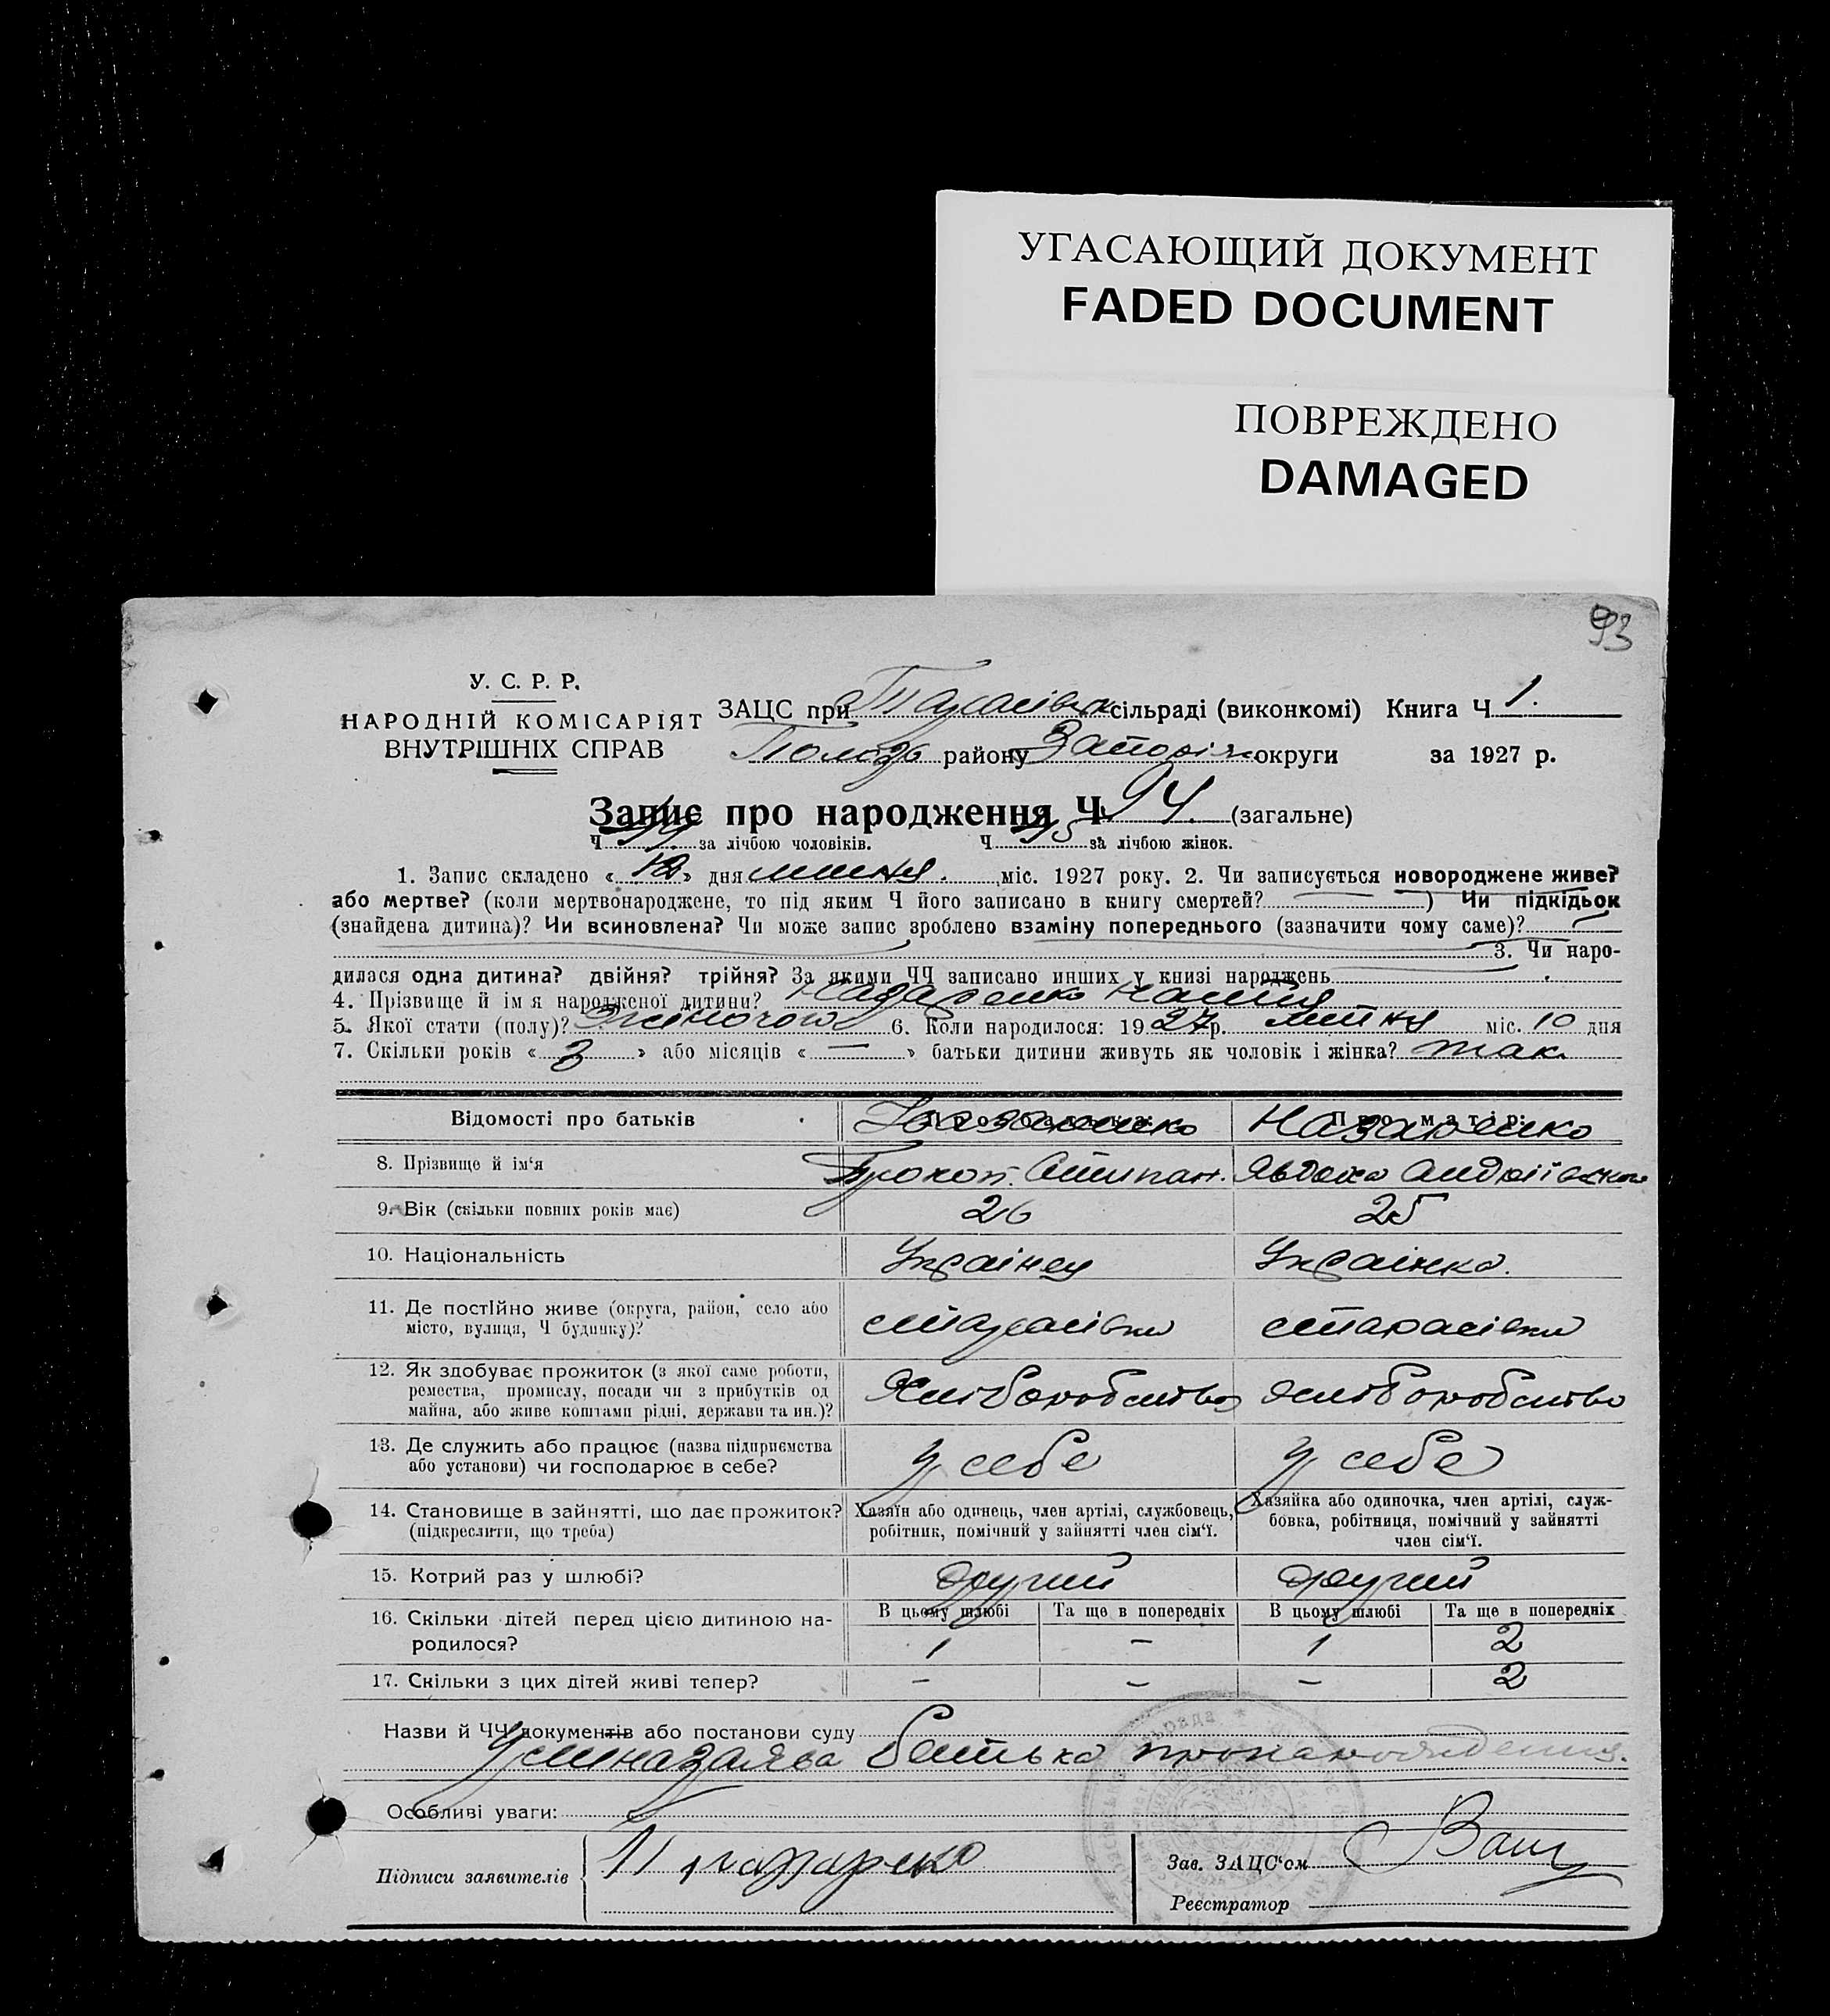 УГАСАЮЩИЙ ДОКУМЕНТ
FADED DOCUMENT
ПОВРЕЖДЕНО
DAMAGED
93
У. С. Р. Р.
НАРОДНІЙ КОМІСАРІЯТ
ВНУТРІШНІХ СПРАВ
ЗАЦС при Тарасівск сільраді (виконкомі) Книга Ч 1.
району Запоріж округи за 1927 р.
Запис про народження Ч 94. (загальне)
Ч за лічбою чоловіків. Ч за лічбою жінок.
1. Запис складено « 12 » дня липня. міс. 1927 року. 2. Чи записується новороджене живе?
або мертве? (коли мертвонароджене, то під яким Ч його записано в книгу смертей? — ) Чи підкідьок
(знайдена дитина)? Чи всиновлена? Чи може запис зроблено взаміну попереднього (зазначити чому саме)? —
3. Чи наро-
дилася одна дитина? двійня? трійня? За якими ЧЧ записано инших у книзі народжень
4. Прізвище й ім'я народженої дитини? Назаренко
5. Якої стати (полу)? Жіночої 6. Коли народилося: 1927 р. липня міс. 10 дня
7. Скільки років « 3 » або місяців « — » батьки дитини живуть як чоловік і жінка? так.
Відомості про батьків Про батька: Назаренко Про матір: Назаренко
8. Прізвище й ім'я Прокоп. Степан. Явдоха Андріївна
9. Вік (скільки повних років має) 26 25
10. Національність Українец Українка.
11. Де постійно живе (округа, район, село або
місто, вулиця, Ч будинку)? с Тарасівка с Тарасівка
12. Як здобуває прожиток (з якої саме роботи,
ремества, промислу, посади чи з прибутків од
майна, або живе коштами рідні, держави та ин.)? Хліборобство хліборобство
13. Де служить або працює (назва підприємства
або установи) чи господарює в себе? у себе у себе
14. Становище в зайнятті, що дає прожиток?
(підкреслити, що треба)
Хазяїн або одинець, член артілі, службовець,
робітник, помічний у зайнятті член сім'ї.
Хазяйка або одиночка, член артілі, служ-
бовка, робітниця, помічний у зайнятті
член сім'ї.
15. Котрий раз у шлюбі? другий другий
16. Скільки дітей перед цією дитиною на-
родилося?
В цьому шлюбі Та ще в попередніх В цьому шлюбі Та ще в попередніх
1 — 1 2
17. Скільки з цих дітей живі тепер? — — — 2
Назви й ЧЧ документів або постанови суду
Усна заява батька про народження.
Особливі уваги:
Підписи заявителів П назарено
Зав. ЗАЦС'ом
Реєстратор